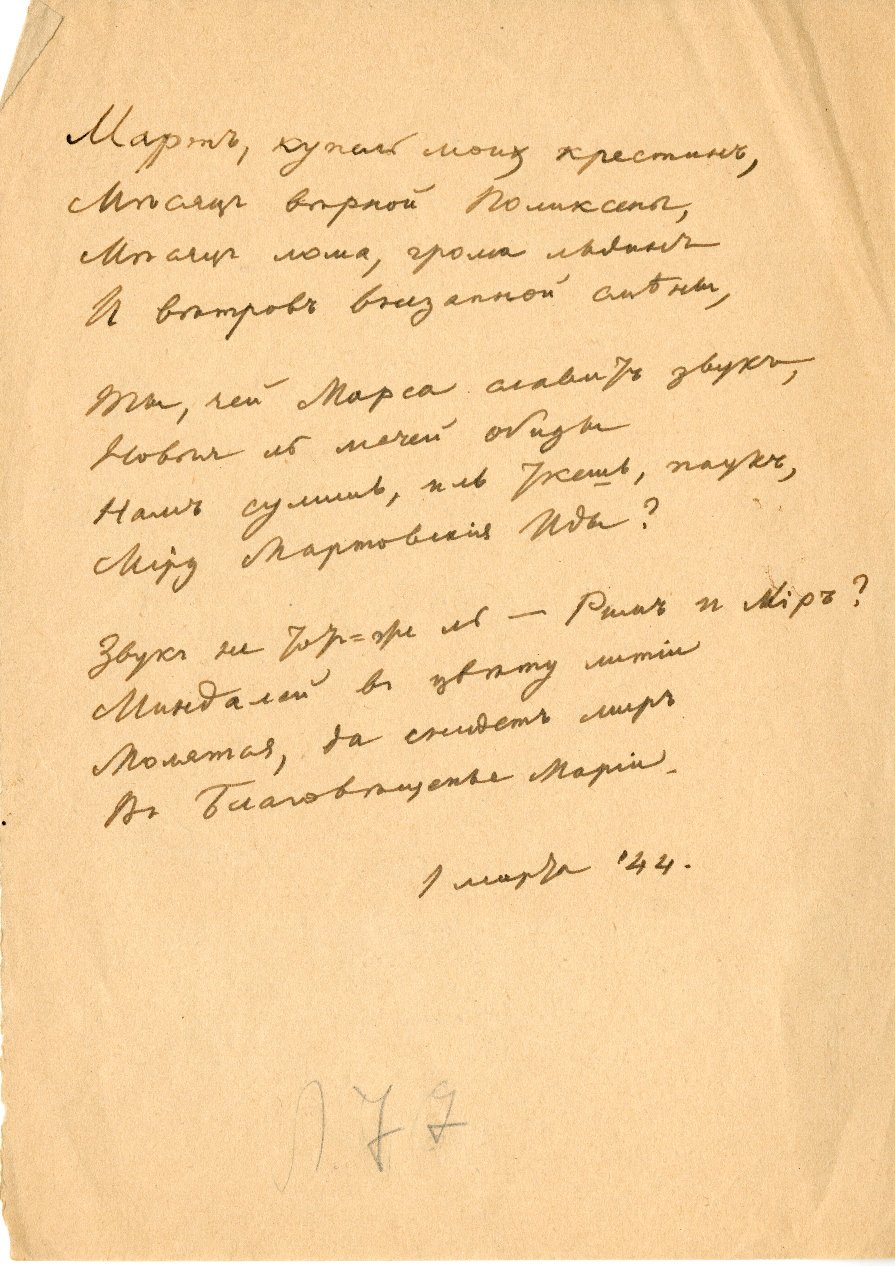 Мартъ, купель моихъ крестинъ,
Мѣсяцъ вѣрной Поликсены,
Мѣсяцъ лома, грома льдинъ
И вѣтровъ внезапной смѣны,
Ты, чей Марса славитъ звукъ,
Новыя ль мечей обиды
Намъ сулишь, иль ткешь, паукъ,
Мiру Мартовскiя Иды?
Звукъ не тотъ=же ль — Римъ и Мiръ?
Миндалей въ цвѣту литiи
Молятся, да снидетъ миръ
Въ Благовѣщенье Марiи.
1 марта '44.
Л. 77